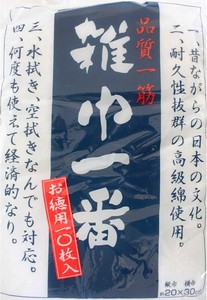 一、昔ながらの日本の文化。
二、耐久性抜群の高級綿使用。
品質一筋
雑巾一番
お徳用一〇枚入
三、水拭き、空拭きなんでも対応。
四、何度も使えて経済的なり。
約20×30cm